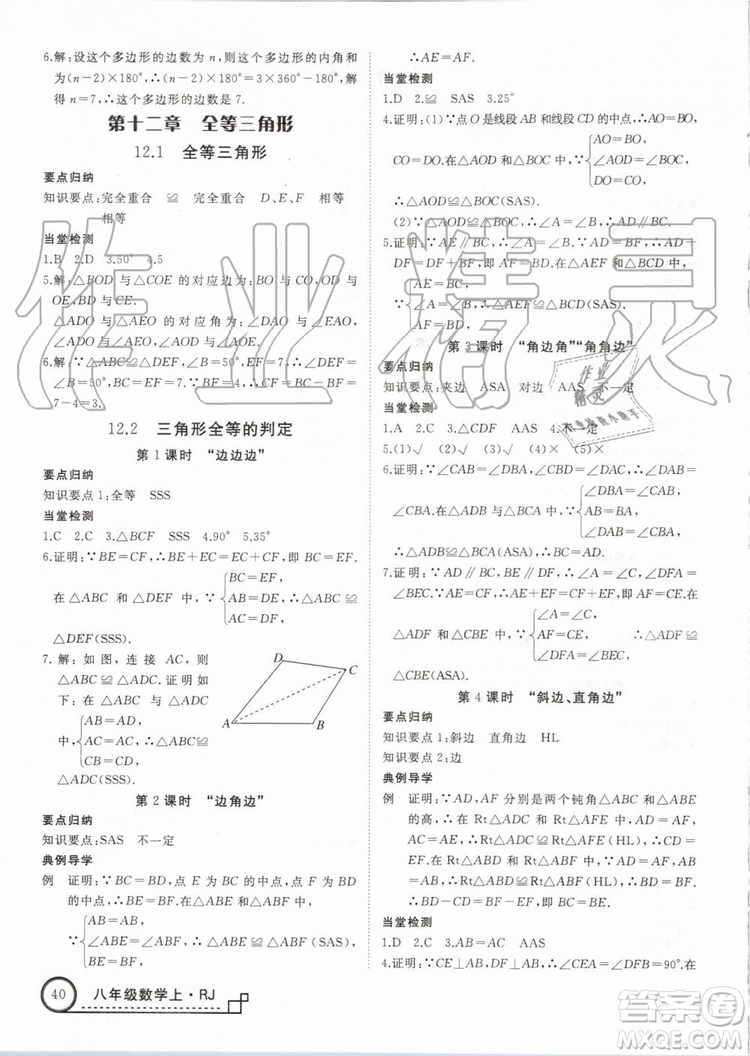 6.解:设这个多边形的边数为 n,则这个多边形的内角和
为(n-2)×180°,∴(n-2)×180°=3×360°-180°,解
得 n=7,∴这个多边形的边数是 7.
第十二章 全等三角形
12.1 全等三角形
要点归纳
知识要点:完全重合 ≌ 完全重合 D、E、F 相等
相等
当堂检测
1.B 2.D 3.50° 4.5
5.解:△BOD 与△COE 的对应边为:BO 与 CO,OD 与
OE,BD 与 CE.
△ADO 与△AEO 的对应角为:∠DAO 与∠EAO,
∠ADO 与∠AEO,∠AOD 与∠AOE.
6.解:∵△ABC≌△DEF,∠B=50°,BC=7,∴∠DEF
=∠B=50°,BC=EF=7,∴CF=BC-BF=EF-BF=
7-4=3.
12.2 三角形全等的判定
第 1 课时 “边边边”
要点归纳
知识要点 1:全等 SSS
当堂检测
1.C 2.C 3.△BCF SSS 4.90° 5.35°
6.证明:∵BE=CF,∴BE+EC=EC+CF,即 BC=EF.
BC=EF,
在△ABC 和△DEF 中,∵ AB=DE, ∴△ABC≌
AC=DF,
△DEF(SSS).
7.解:如图,连接 AC,则
△ABC≌△ADC.证明如
下:在△ABC 与△ADC
AB=AD,
中,∵ AC=AC, ∴△ABC≌
CB=CD,
△ADC(SSS).
D
C
A
B
第 2 课时 “边角边”
要点归纳
知识要点:SAS 不一定
典例导学
例 证明:∵BC=BD,点 E 为 BC 的中点,点 F 为 BD
的中点,∴BE=BF.在△ABE 和△ABF 中,
AB=AB,
∵ ∠ABE=∠ABF, ∴△ABE≌△ABF(SAS),
BE=BF,
40 八年级数学上·RJ
∴AE=AF.
当堂检测
1.D 2.≌ SAS 3.25°
4.证明:(1)∵点 O 是线段 AB 和线段 CD 的中点,∴AO=BO,
AO=BO,
CO=DO.在△AOD 和△BOC 中,∵ ∠AOD=∠BOC,
DO=CO,
∴△AOD≌△BOC(SAS).
(2)∵△AOD≌△BOC,∴∠A=∠B,∴AD∥BC.
5.证明:∵AE∥BC,∴∠A=∠B.∵AD=BF,∴AD+
DF=DF+BF,即 AF=BD.在△AEF 和△BCD 中,
AE=BC,
∵ ∠A=∠B, ∴△AEF≌△BCD(SAS).
AF=BD,
第 3 课时 “角边角”“角角边”
要点归纳
知识要点:夹边 ASA 对边 AAS 不一定
当堂检测
1.A 2.C 3.△CDF AAS 4.不一定
5.(1)√ (2)√ (3)√ (4)× (5)×
6.证明:∵∠CAB=∠DBA,∠CBD=∠DAC,∴∠DAB=
∠DAB=∠CBA,
∠CBA.在△ADB 与△BCA 中,∵ AB=BA,
∠DBA=∠CAB,
∴△ADB≌△BCA(ASA),∴BC=AD.
7.证明:∵AD∥BC,DF∥BE,∴∠A=∠C,∠DFE=
∠BEC.∵AE=CF,∴AE+EF=CF+EF,即 AF=CE.在
∠A=∠C,
△ADF 和△CBE 中,∵ AF=CE, ∴△ADF≌
∠DFA=∠BEC,
△CBE(ASA).
第 4 课时 “斜边、直角边”
要点归纳
知识要点 1:斜边 直角边 HL
知识要点 2:边
典例导学
例 证明:∵AD,AF 分别是两个钝角△ABC 和△ABE
的高,∴∠D=∠F=90°.在 Rt△ADC 与 Rt△AFE 中,
AC=AE,
∵ ∴Rt△ADC≌Rt△AFE(HL),∴CD=EF.
AD=AF,
在 Rt△ABD 和 Rt△ABF 中,∵AB=AB,AD=AF,
∴Rt△ABD≌Rt△ABF(HL),∴BD=BF,
∴BD-CD=BF-EF,即 BC=BE.
当堂检测
1.D 2.C 3.AB=AC AAS
4.证明:∵CE⊥AB,DF⊥AB,∴∠AEC=∠BFD=90°.在
作业精灵
作业
精灵
答案圈
MXQE.COM